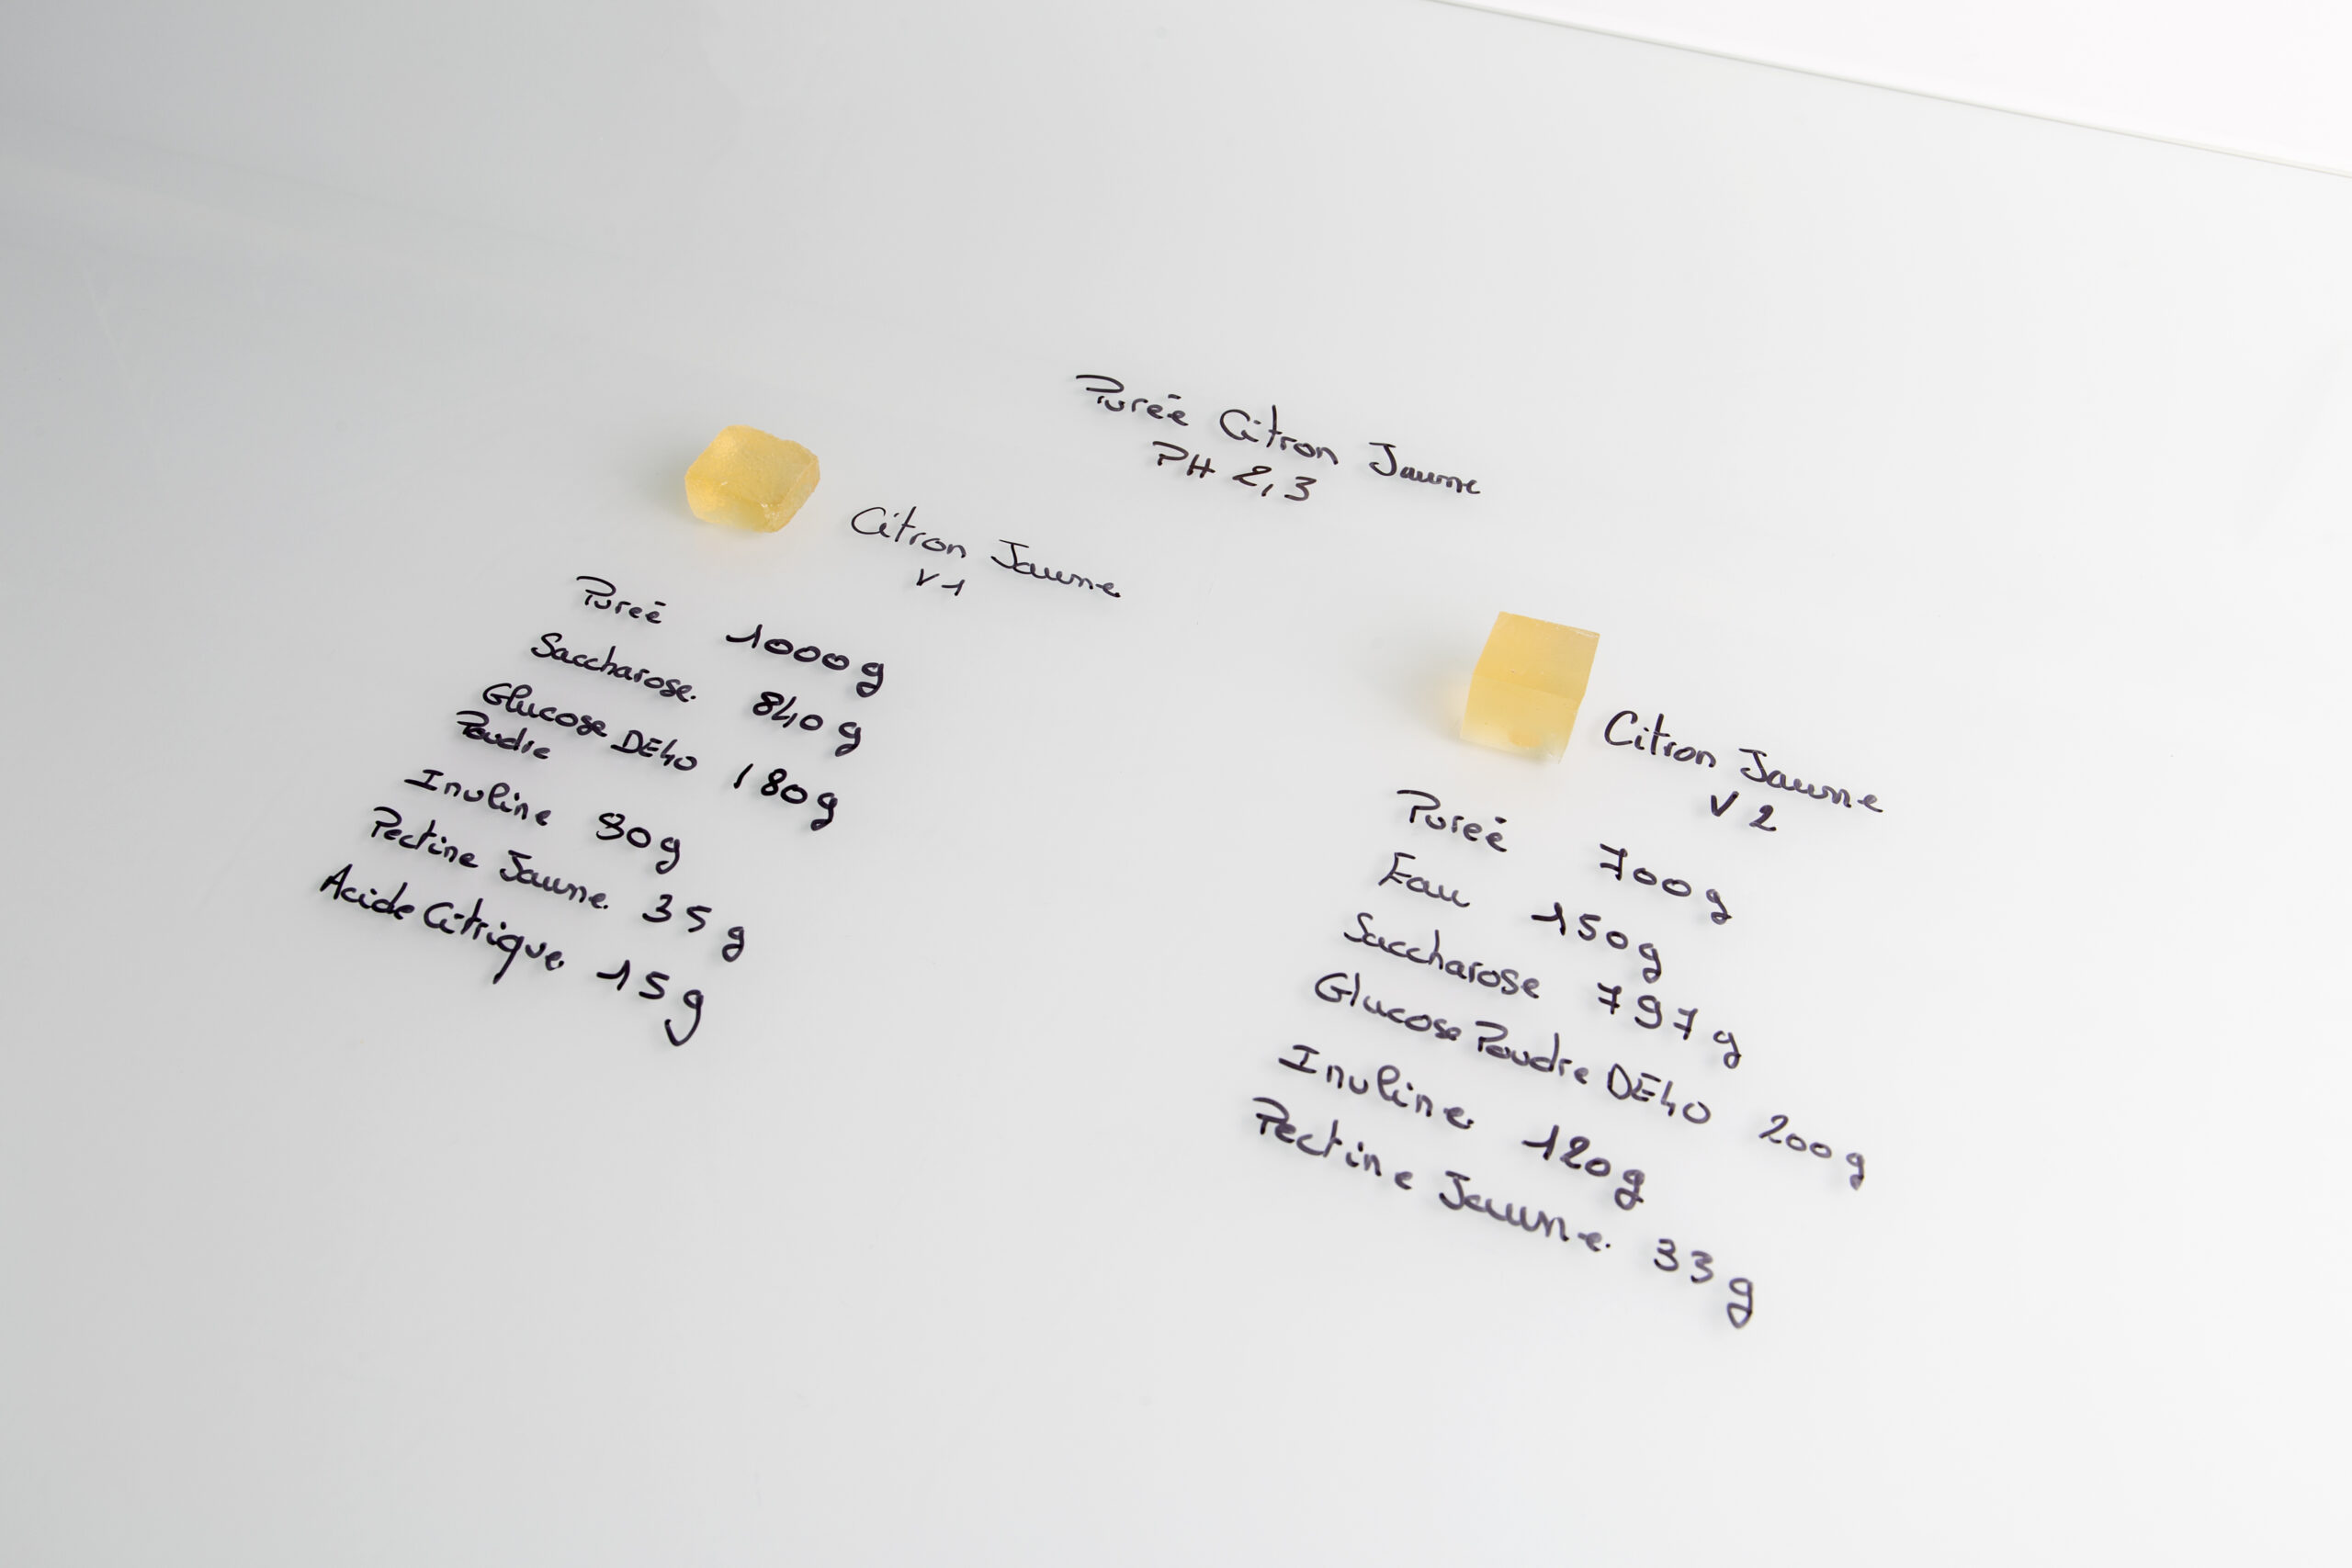 Purée Citron Jaune
PH 2,3
Citron Jaune
V1
Pureé 1000g
Saccharose 840g
Glucose DE40 180g
Poudre
Inuline 90g
Pectine Jaune 35g
Acide Citrique 15g
Citron Jaune
V2
Pureé 700g
Eau 150g
Saccharose 797g
Glucose Poudre DE40 200g
Inuline 120g
Pectine Jaune 33g